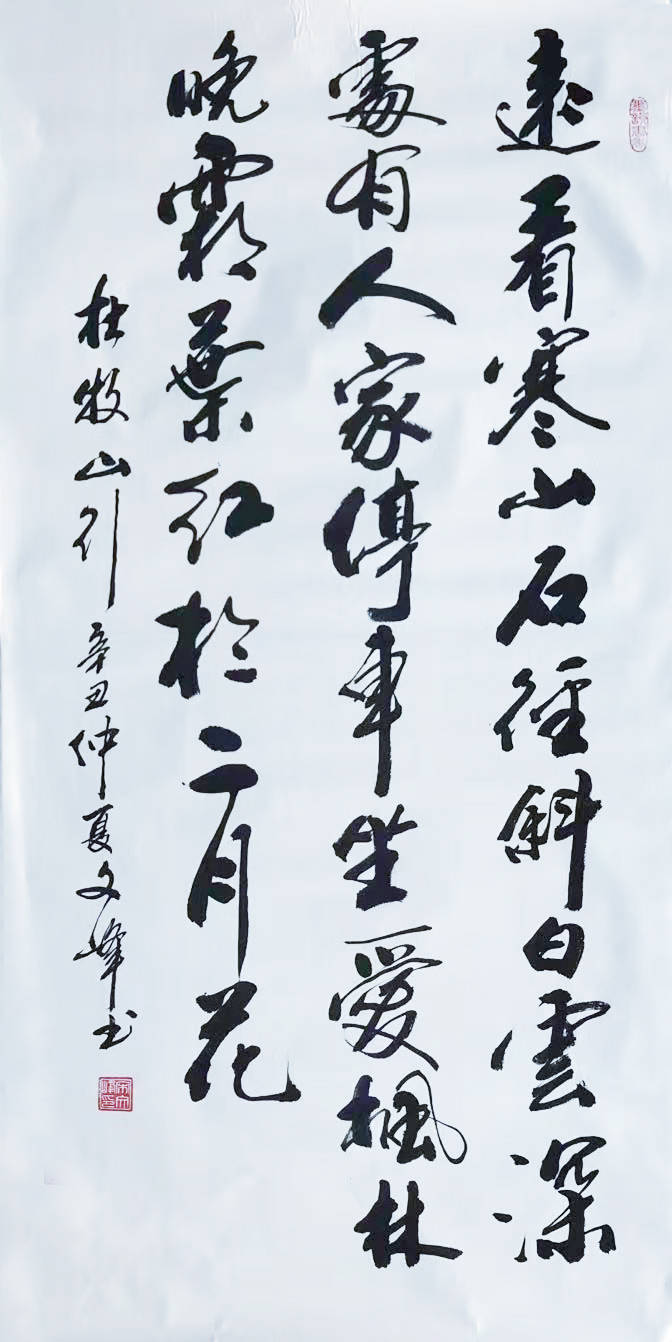 遠看寒山石徑斜白雲深
處有人家停車坐愛楓林
晚霜葉紅於二月花
杜牧山行 辛丑仲夏文峰书